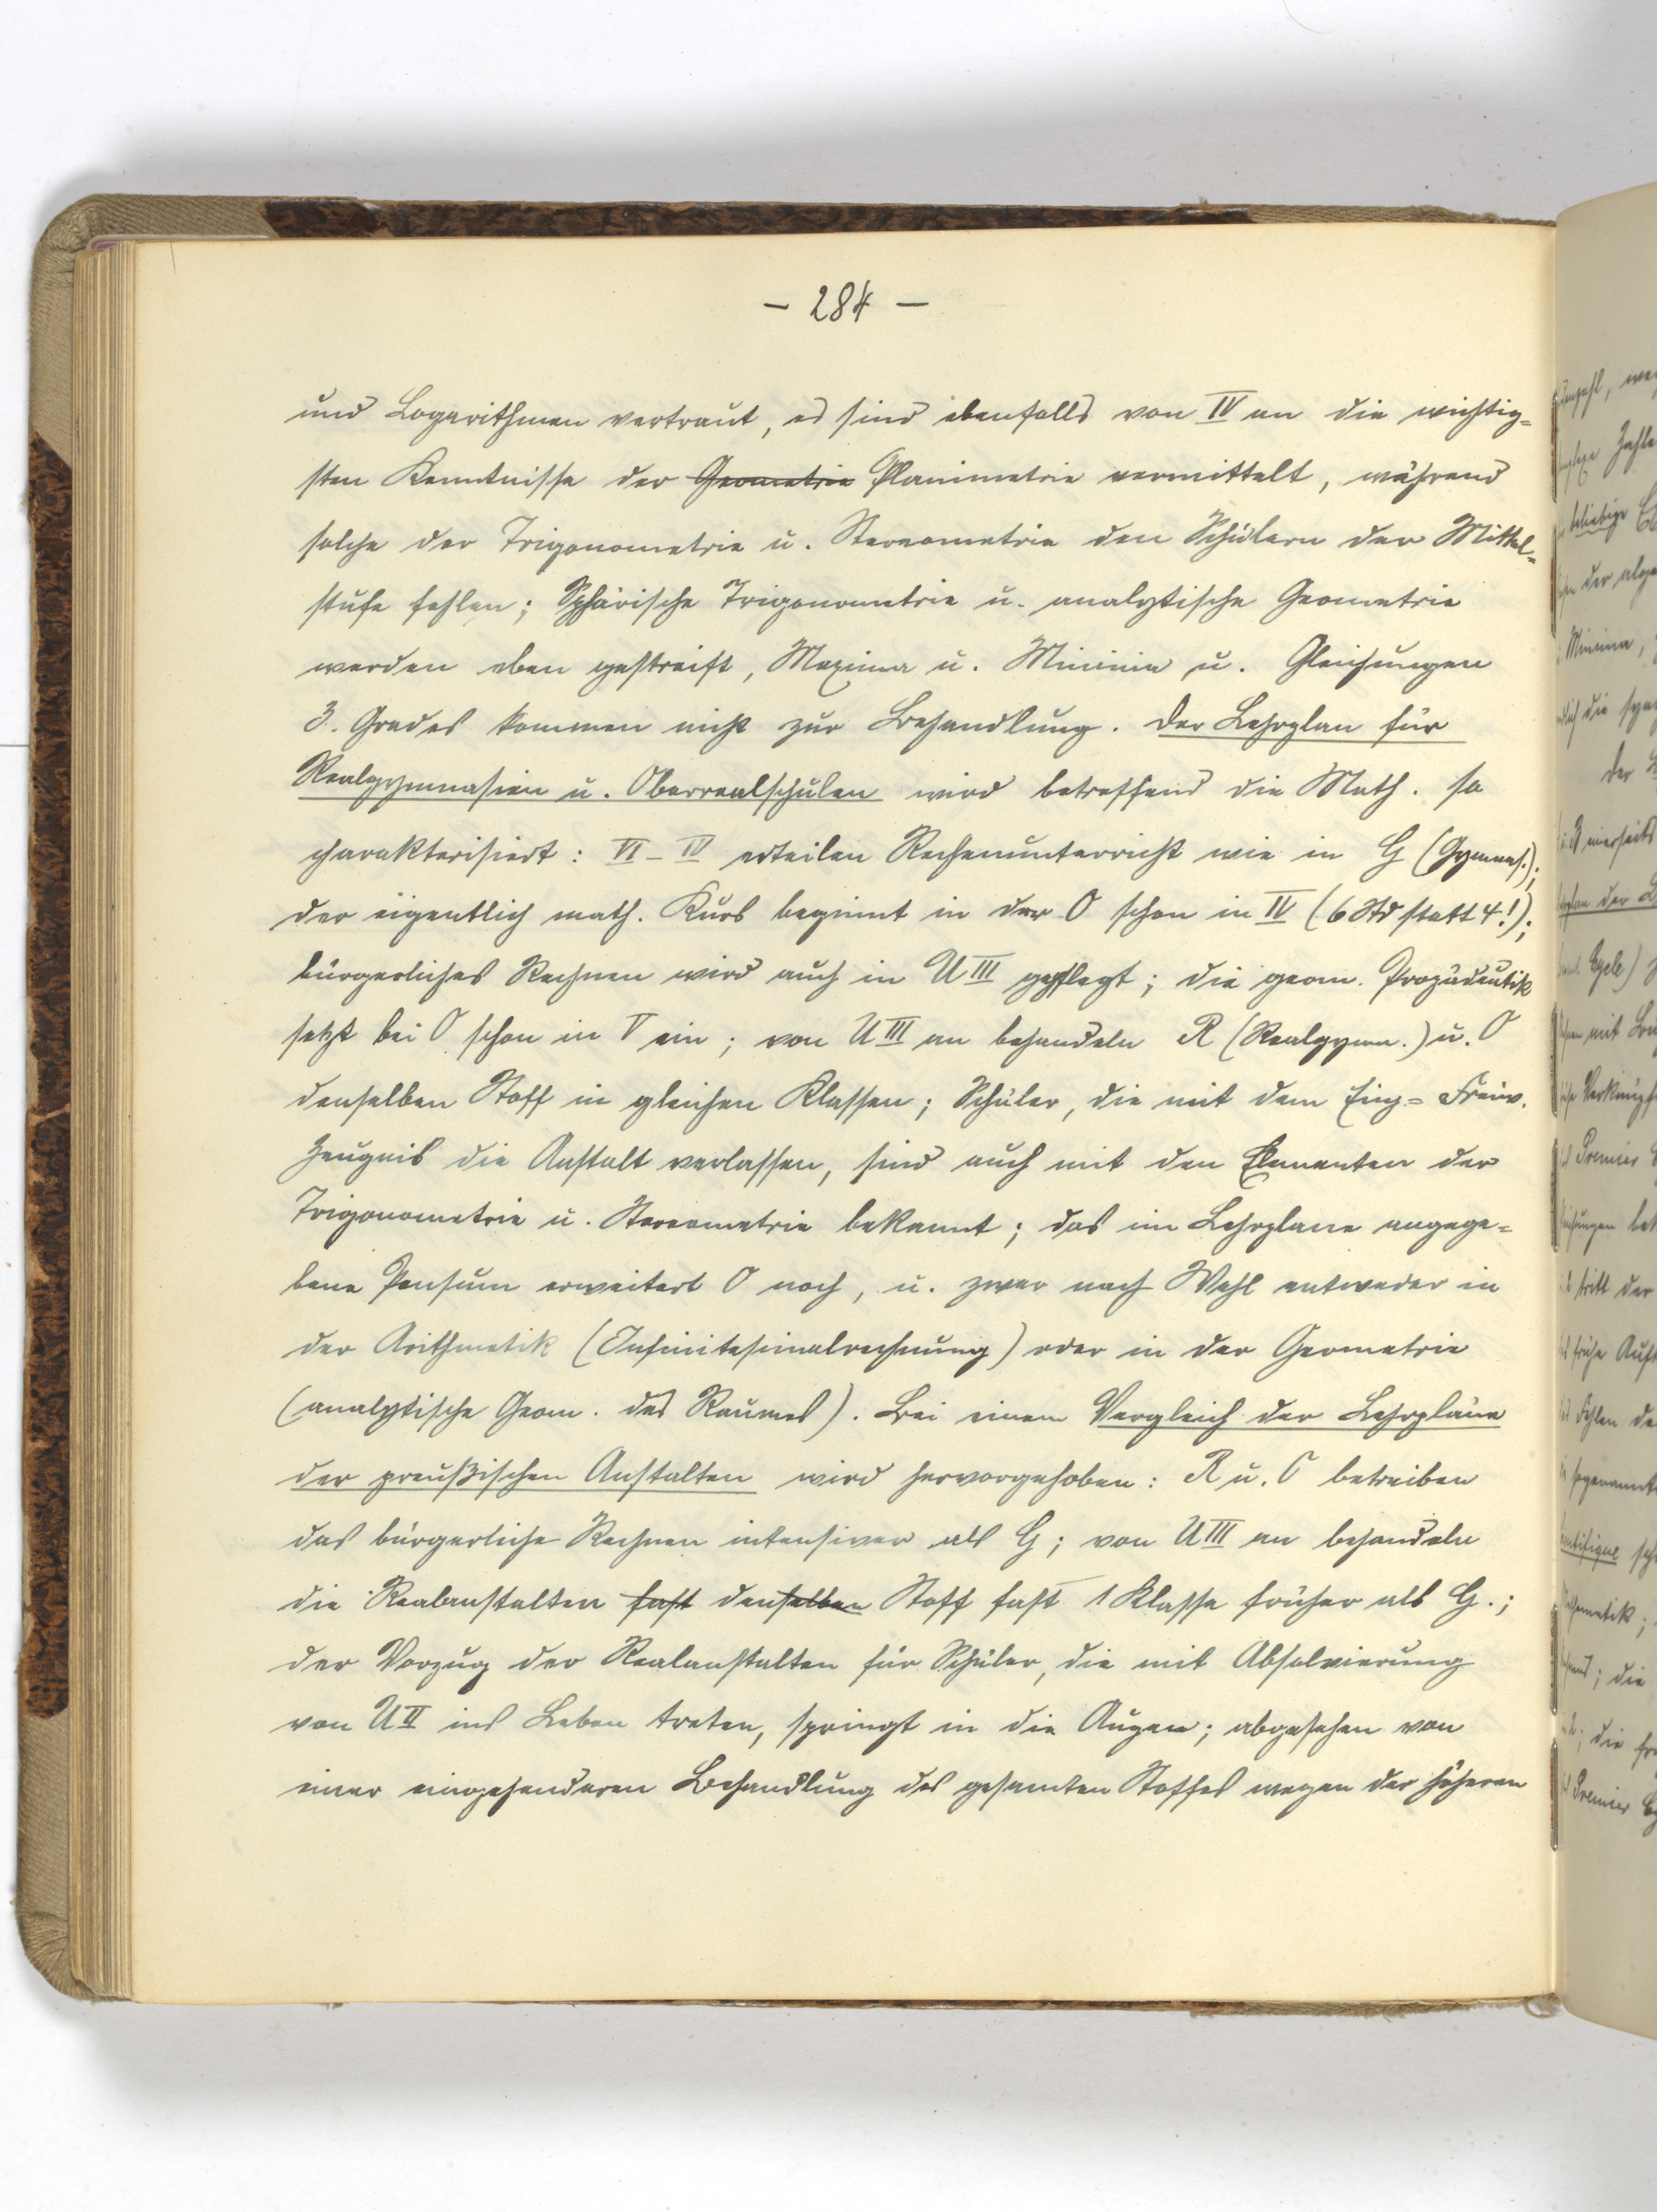 - 284 -
und Logarithmen vertraut, es sind ebenfalls von IV an die wichtig=
sten Kenntnisse der Geometrie Planimetrie vermittelt, während
solche der Trigonometrie u. Stereometrie den Schülern der Mittel=
stufe fehlen; Sphärische Trigonometrie u. analytische Geometrie
werden eben gestreift, Maxima u. Minima u. Gleichungen
3. Grades kommen nicht zur Behandlung. Der Lehrplan für
Realgymnasien u. Oberrealschulen wird betreffend die Math. so
charakterisiert: VI - IV erteilen Rechenunterricht wie in G (Gymnas.);
der eigentlich math. Kurs beginnt in der O schon in IV (6 Std statt 4!);
bürgerliches Rechnen wird auch in U III gepflegt; die geom. Propädeutik
setzt bei O schon in V ein; von U III an behandeln R (Realgymn.) u. O
denselben Stoff in gleichen Klassen; Schüler, die mit dem Einj.= Freiw.
Zeugnis die Anstalt verlassen, sind auch mit den Elementen der
Trigonometrie u. Stereometrie bekannt; das im Lehrplane angege=
bene Pensum erweitert O noch, u. zwar nach Wahl entweder in
der Arithmetik (Infinitesimalrechnung) oder in der Geometrie
(analytische Geom. des Raumes). Bei einem Vergleich der Lehrpläne
der preußischen Anstalten wird hervorgehoben: R u. O betreiben
das bürgerliche Rechnen intensiver als G; von U III an behandeln
die Realanstalten fast denselben Stoff fast 1 Klasse früher als G.;
der Vorzug der Realanstalten für Schüler, die mit Absolvierung
von U II ins Leben treten, springt in die Augen; abgesehen von
einer eingehenderen Behandlung des gesamten Stoffes wegen der höheren